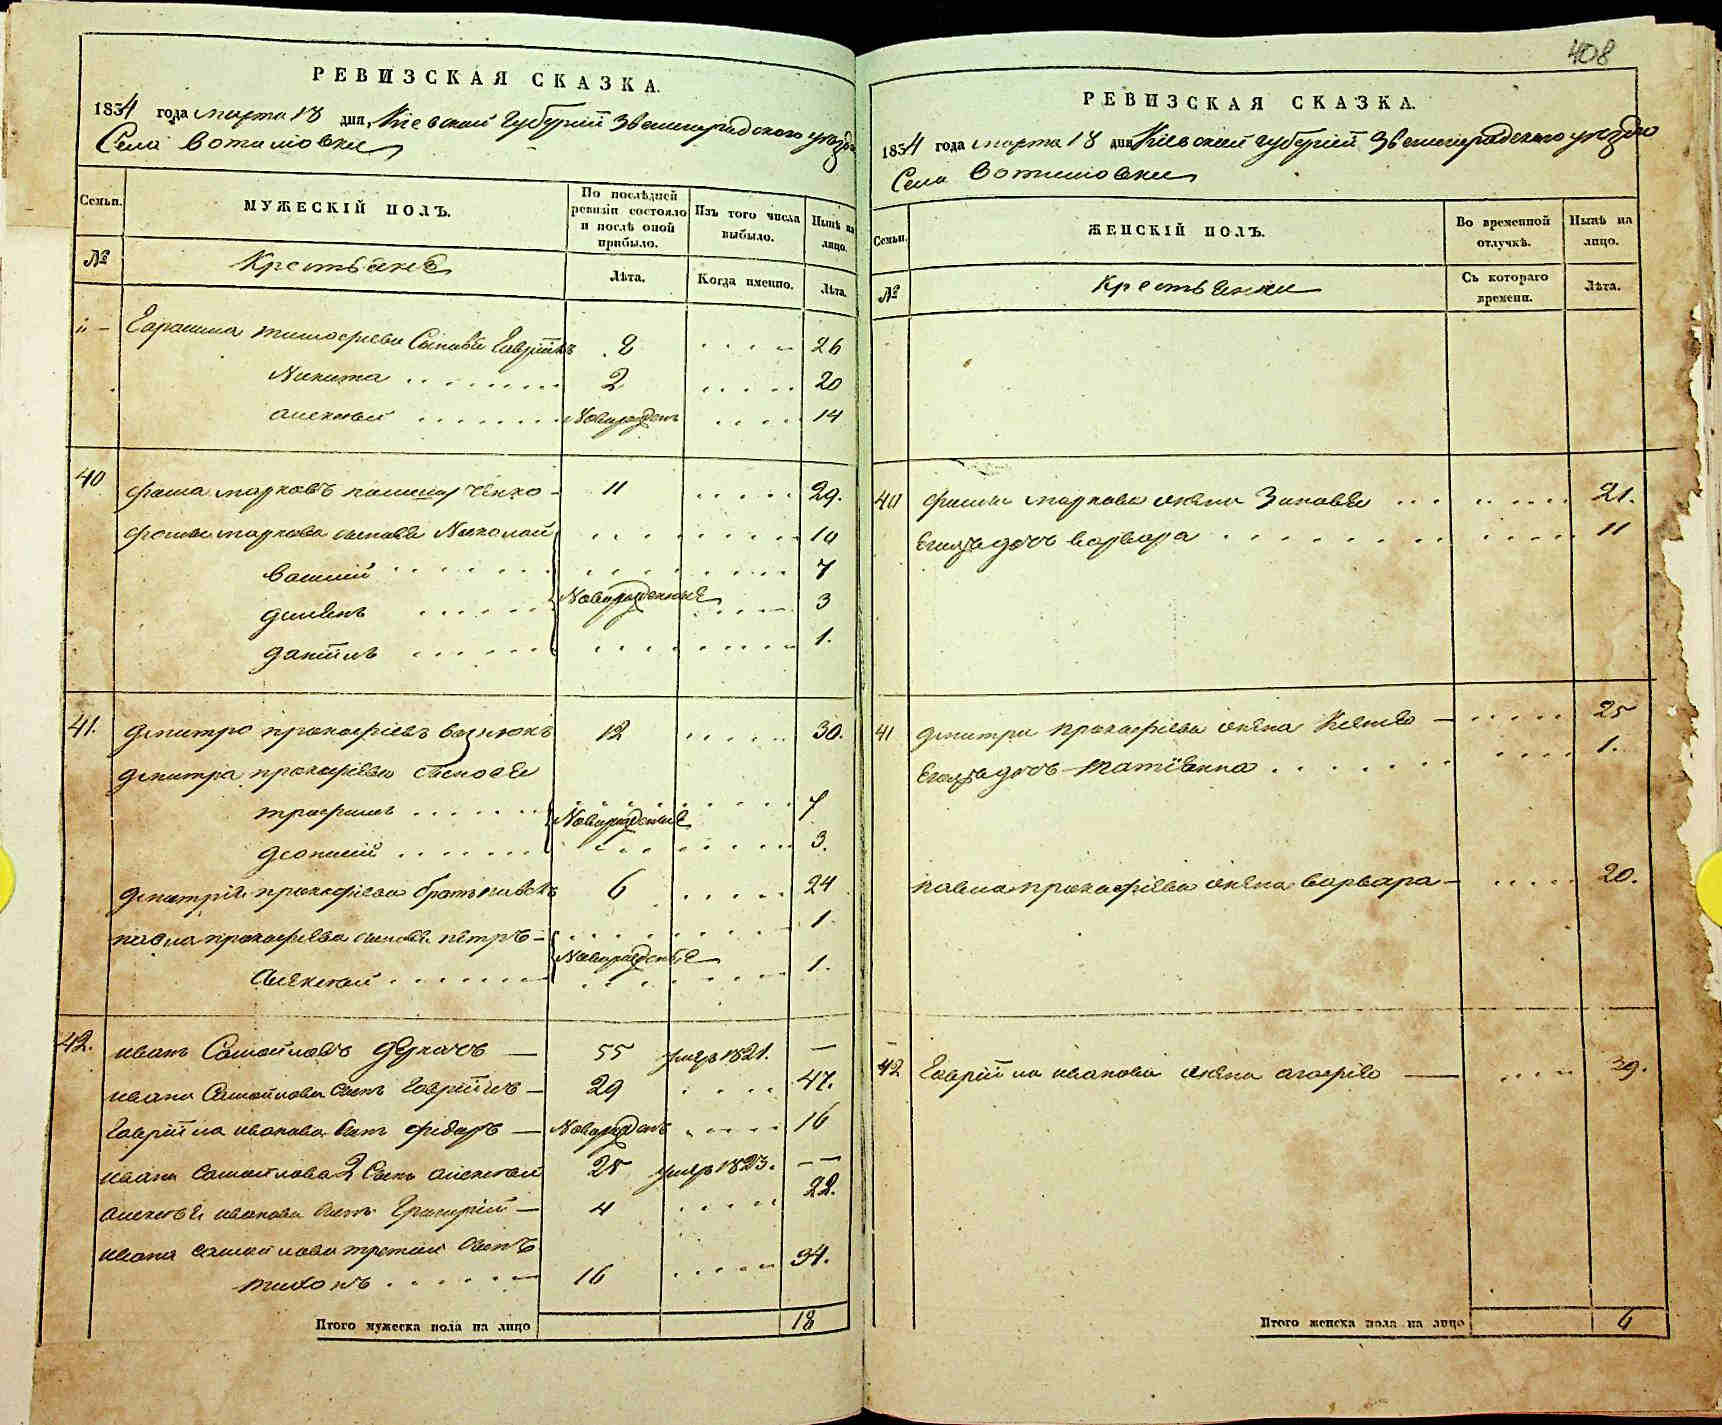 408
РЕВИЗСКАЯ СКАЗКА.
1834 года марта 18 дня, Кіевской губерніи Звенигородского уезда
Села Вотылювки
Семьи. МУЖЕСКІЙ ПОЛЪ. По послѣдней ревизіи состояло и послѣ оной прибыло. Изъ того числа выбыло. Нынѣ на лицо.
№ Крестьяне Лѣта. Когда именно. Лѣта.
Герасима Тимофеева сыновья Гаврило 26
Никита 2 20
Алексей Новорожден 14
40 Фома Марковъ 11 29.
Фомы Маркова сыновья Николай 10
Василий 7
Новорожденные 3
Данило 1.
41. Дмитро Прокофіевъ 12 30.
Дмитра Прокофіева сыновья
Трофимъ 7
Новорожденные
3.
Дмитрія Прокофіева братъ Павелъ 6 24
Павла Прокофіева сыновья Петръ 1.
Новорожденные
Алексей 1.
42. Иванъ Самойловъ Деркачъ 55 умеръ 1821. —
Ивана Самойлова сынъ Гаврило 29 47.
Гаврила Иванова сынъ Федоръ Новорожденъ 16
Ивана Самойлова 2 сынъ Алексей 25 умеръ 1823. —
Алексея Иванова сынъ Григорий 4 22.
Ивана Самойлова третий сынъ
Тихонъ 16 34.
Итого мужеска пола на лицо 18
РЕВИЗСКАЯ СКАЗКА.
1834 года марта 18 дня Кіевской губерніи Звенигородского уезда
Села Вотылювки
Семьи. ЖЕНСКІЙ ПОЛЪ. Во временной отлучкѣ. Нынѣ на лицо.
№ Крестьянки Съ котораго времени. Лѣта.
40 Фомы Маркова жена Зиновья 21.
Его дочь Варвара 11
41 Дмитра Прокофіева жена 25
Его дочь Татіянна 1.
Павла Прокофіева жена Варвара 20.
42 Гаврила Иванова жена Агафія 39.
Итого женска пола на лицо 6